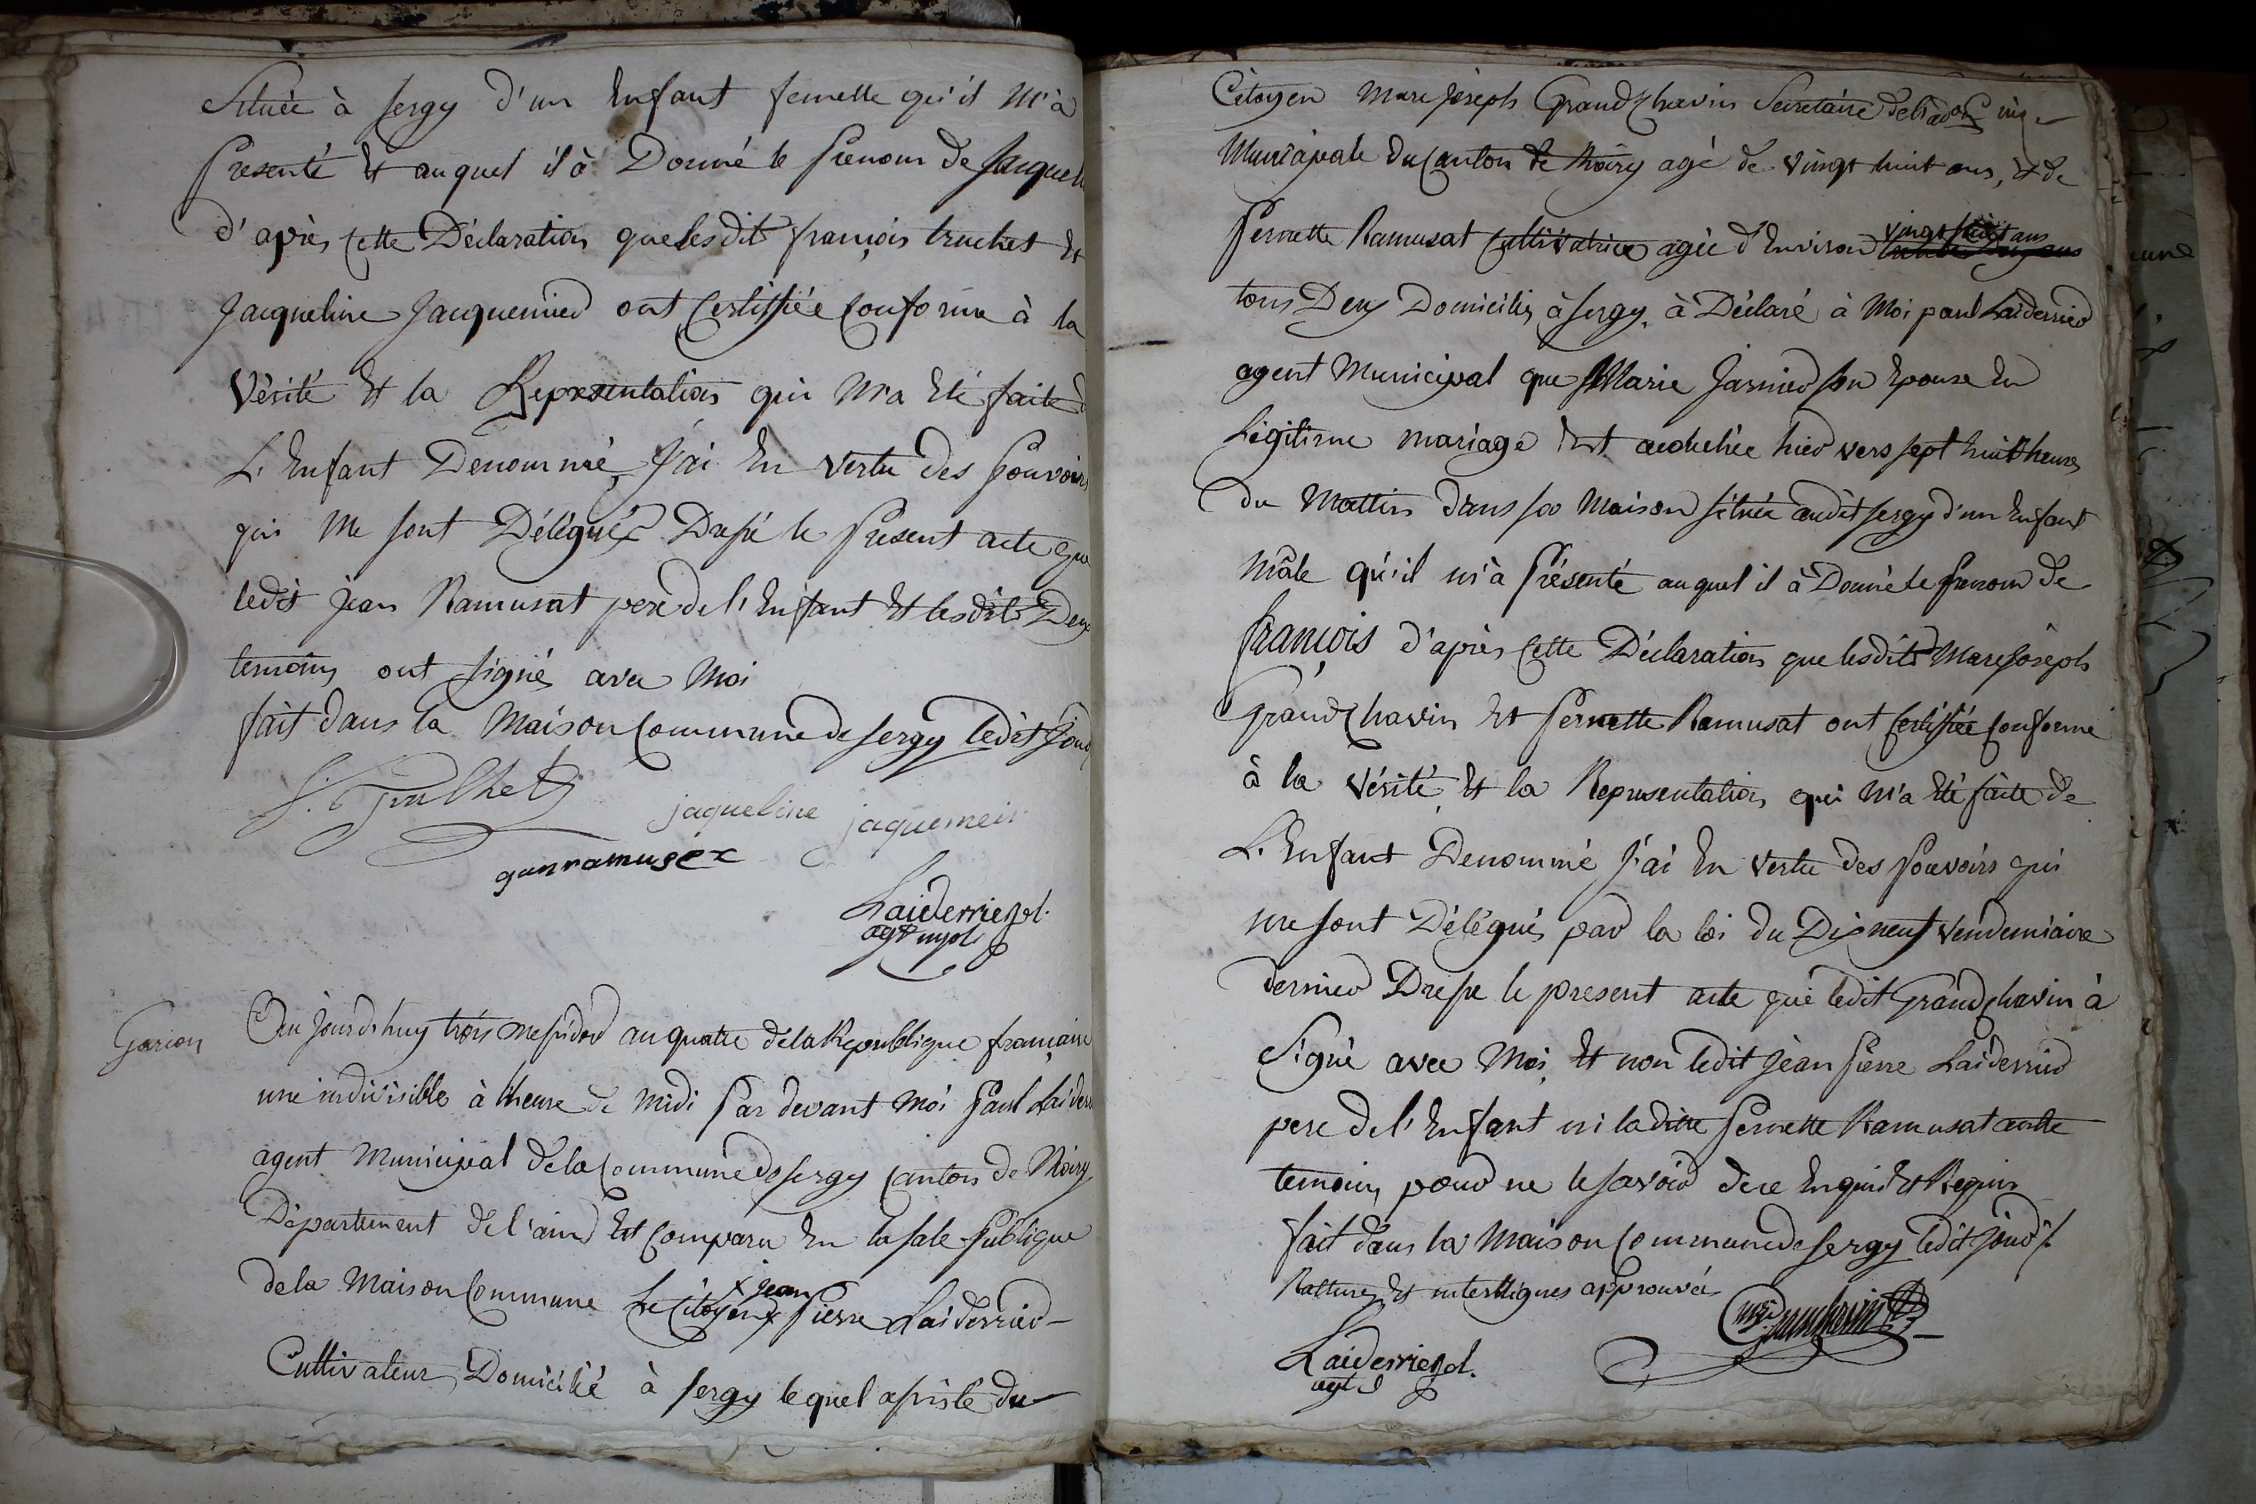 Située à Sergy d'un Enfant femelle qu'il M'à
Presenté Et auquel il à Donné le Prenom de
d'après Cette Déclaration que lesdits françois truchet Et
Jacqueline Jacquemier ont Certiffiée Conforme à la
Vérité Et la Representation qui M'a Eté faite
L'Enfant Denommé J'ai En vertu des Pouvoirs
qui Me sont Délégués Dressé le Present acte que
ledit Jean Ramusat pere de l'Enfant Et lesdits Deux
temoins ont signés avec Moi
fait dans la Maison Commune de Sergy ledit Jour
jaqueline jaquemeir
Laiderrier
agt mpl
Garcon
Aujourdhuy trois Messidor an quatre de la Republique française
une indivisible à l'heure de Midi Par devant Moi Paul
agent Municipal de la Commune de Sergy Canton de Thoiry
Département de l'aind Est Comparu En la sale Publique
de la Maison Commune Le Citoyen x Pierre Laiderrier
x jean
Cultivateur Domicilié à Sergy lequel assisté du
Citoyen Marc Joseph GrandChavin Secretaire de l'ad.on
Municipale du Canton de Thoiry agé de vingt huit ans, Et de
vingt huit ans
Pernette Ramusat Cultivatrice agée d'Environ
tous Deux Domiciliés à Sergy, à Déclaré à Moi paul Laiderrier
agent Municipal que Marie Jarnier son Epouse En
Légitime mariage Est accouchée hier vers sept huit heures
du Mattin dans sa Maison située audit Sergy d'un Enfant
Mâle qu'il m'à Présenté auquel il à Donné le Prenom de
François d'après Cette Déclaration que lesdits Marc Joseph
GrandChavin Et Pernette Ramusat ont Certiffiée Conforme
à la Vérité, Et la Representation qui M'a Eté faite de
L'Enfant Denommé J'ai En vertu des Pouvoirs qui
me sont Délégués par la loi du Dix neuf Vendemiaire
dernier Dressé le present acte que ledit GrandChavin à
Signé avec Moi, Et non ledit Jean Pierre Laiderrier
pere de l'Enfant ni ladite Pernette Ramusat autre
temoin, pour ne le savoir de ce Enquis Et Requis
fait dans la Maison Commune de Sergy ledit Jour
Ratture Et interlignes approuvés
Laiderrier
agt